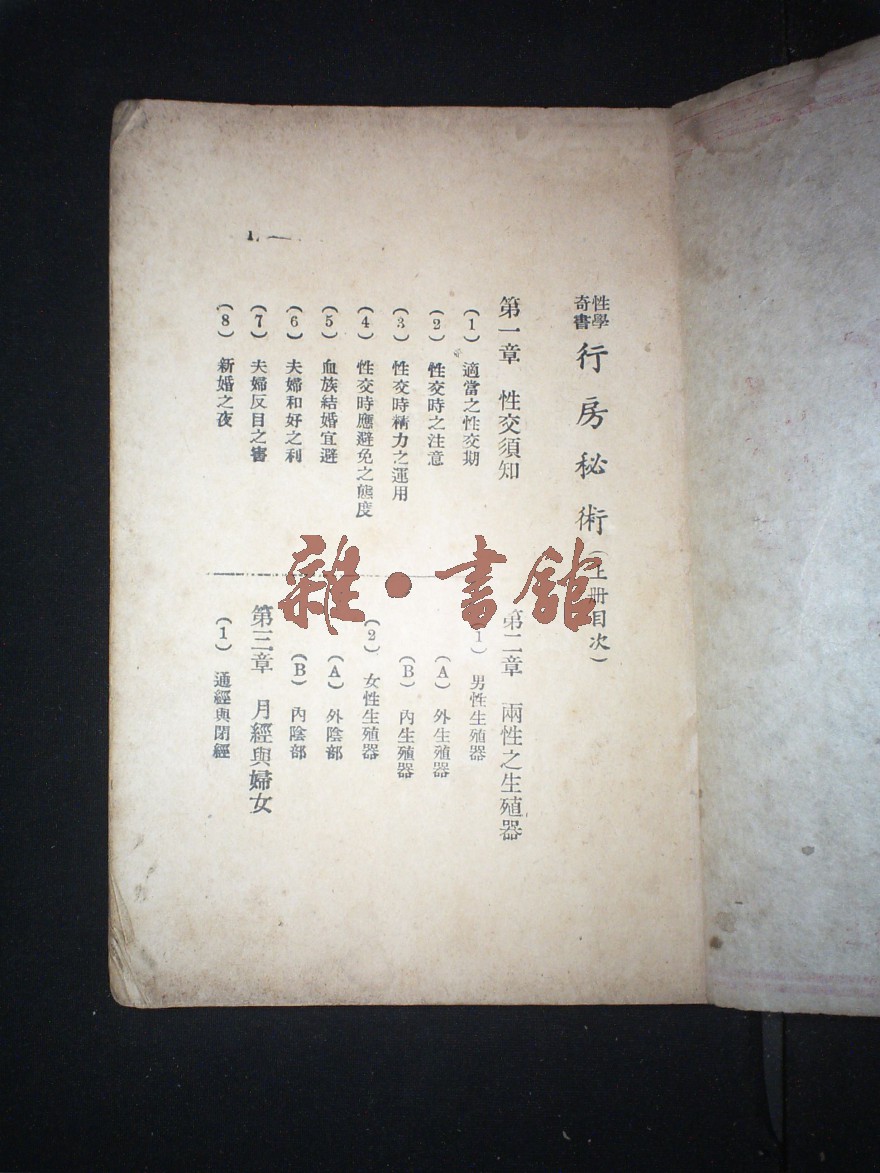 性學
奇書
行房秘術(上冊目次)
第一章 性交須知
(1) 適當之性交期
(2) 性交時之注意
(3) 性交時精力之運用
(4) 性交時應避免之態度
(5) 血族結婚宜避
(6) 夫婦和好之利
(7) 夫婦反目之害
(8) 新婚之夜
第二章 兩性之生殖器
(1) 男性生殖器
(A) 外生殖器
(B) 內生殖器
(2) 女性生殖器
(A) 外陰部
(B) 內陰部
第三章 月經與婦女
(1) 通經與閉經
雜·書館